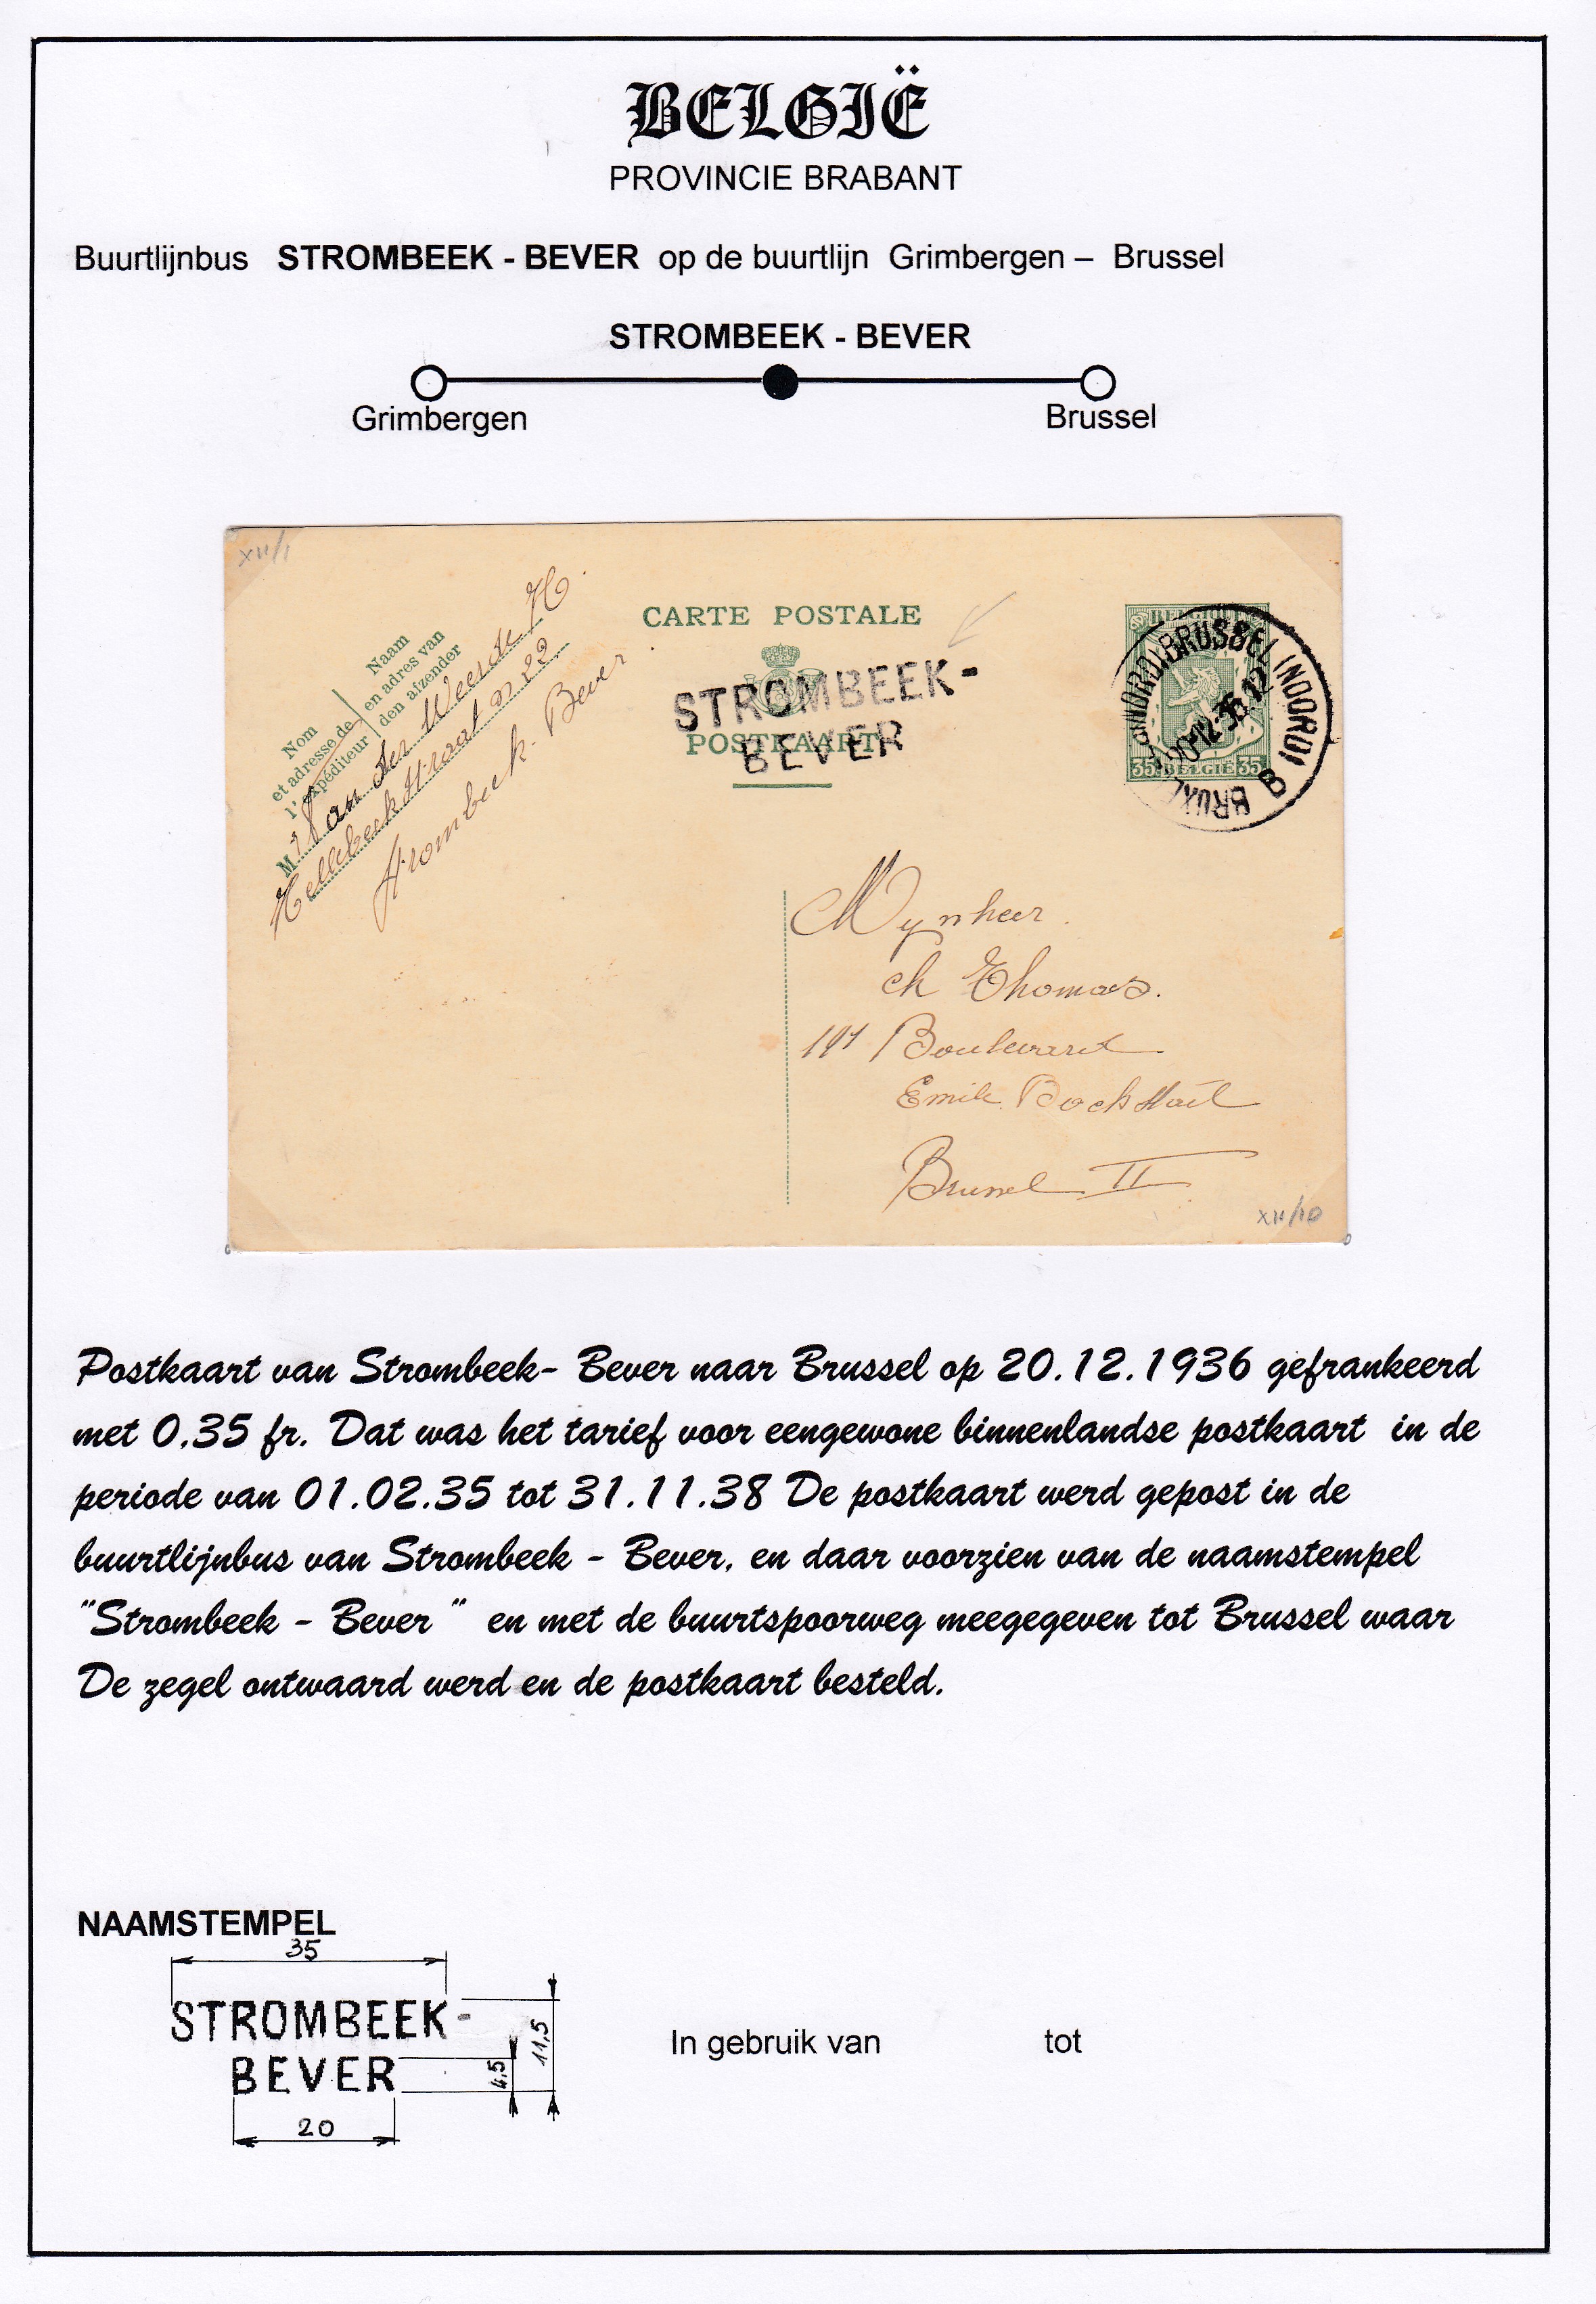 BELGIË
PROVINCIE BRABANT
Buurtlijnbus STROMBEEK - BEVER op de buurtlijn Grimbergen – Brussel
STROMBEEK - BEVER
Grimbergen
Brussel
XII/1
Nom
et adresse de
l'expéditeur
Naam
en adres van
den afzender
M Van der Weerde H
Hellebeekstraat nr 22
Strombeek-Bever
CARTE POSTALE
STROMBEEK-
POSTKAART
BEVER
BELGIQUE
35 BELGIË 35
BRUSSEL (NOORD) 8 BRUX
20-12-36.12
Mynheer
ch Thomas.
191 Boulevard
Emile Bockstael
Brussel II
XII/10
Postkaart van Strombeek- Bever naar Brussel op 20.12.1936 gefrankeerd
met 0.35 fr. Dat was het tarief voor eengewone binnenlandse postkaart in de
periode van 01.02.35 tot 31.11.38 De postkaart werd gepost in de
buurtlijnbus van Strombeek - Bever, en daar voorzien van de naamstempel
"Strombeek - Bever " en met de buurtspoorweg meegegeven tot Brussel waar
De zegel ontwaard werd en de postkaart besteld.
NAAMSTEMPEL
35
STROMBEEK-
BEVER
4.5
11,5
20
In gebruik van tot